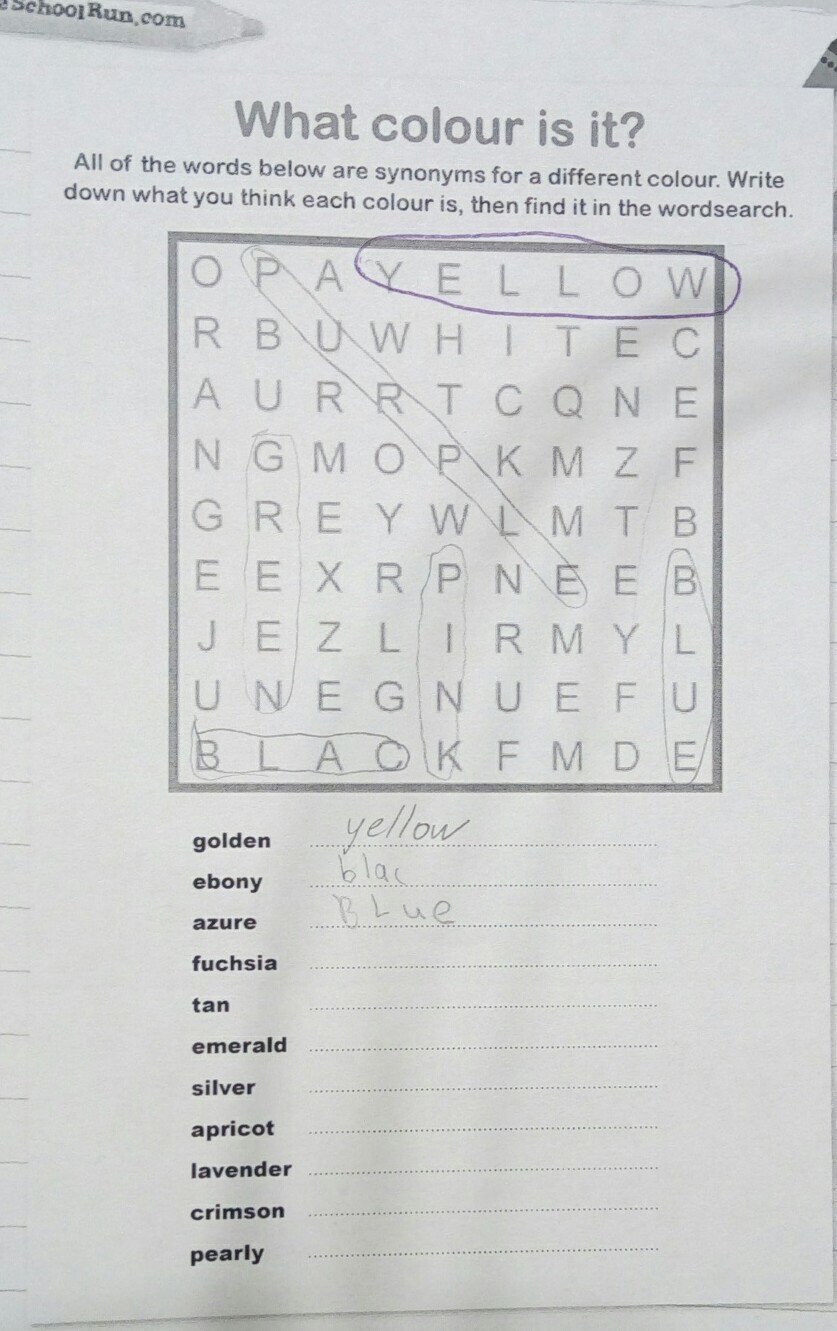 eSchoolRun.com
What colour is it?
All of the words below are synonyms for a different colour. Write
down what you think each colour is, then find it in the wordsearch.
O P A Y E L L O W
R B U W H I T E C
A U R R T C Q N E
N G M O P K M Z F
G R E Y W L M T B
E E X R P N E E B
J E Z L I R M Y L
U N E G N U E F U
B L A C K F M D E
golden yellow
ebony blac
azure BLue
fuchsia
tan
emerald
silver
apricot
lavender
crimson
pearly